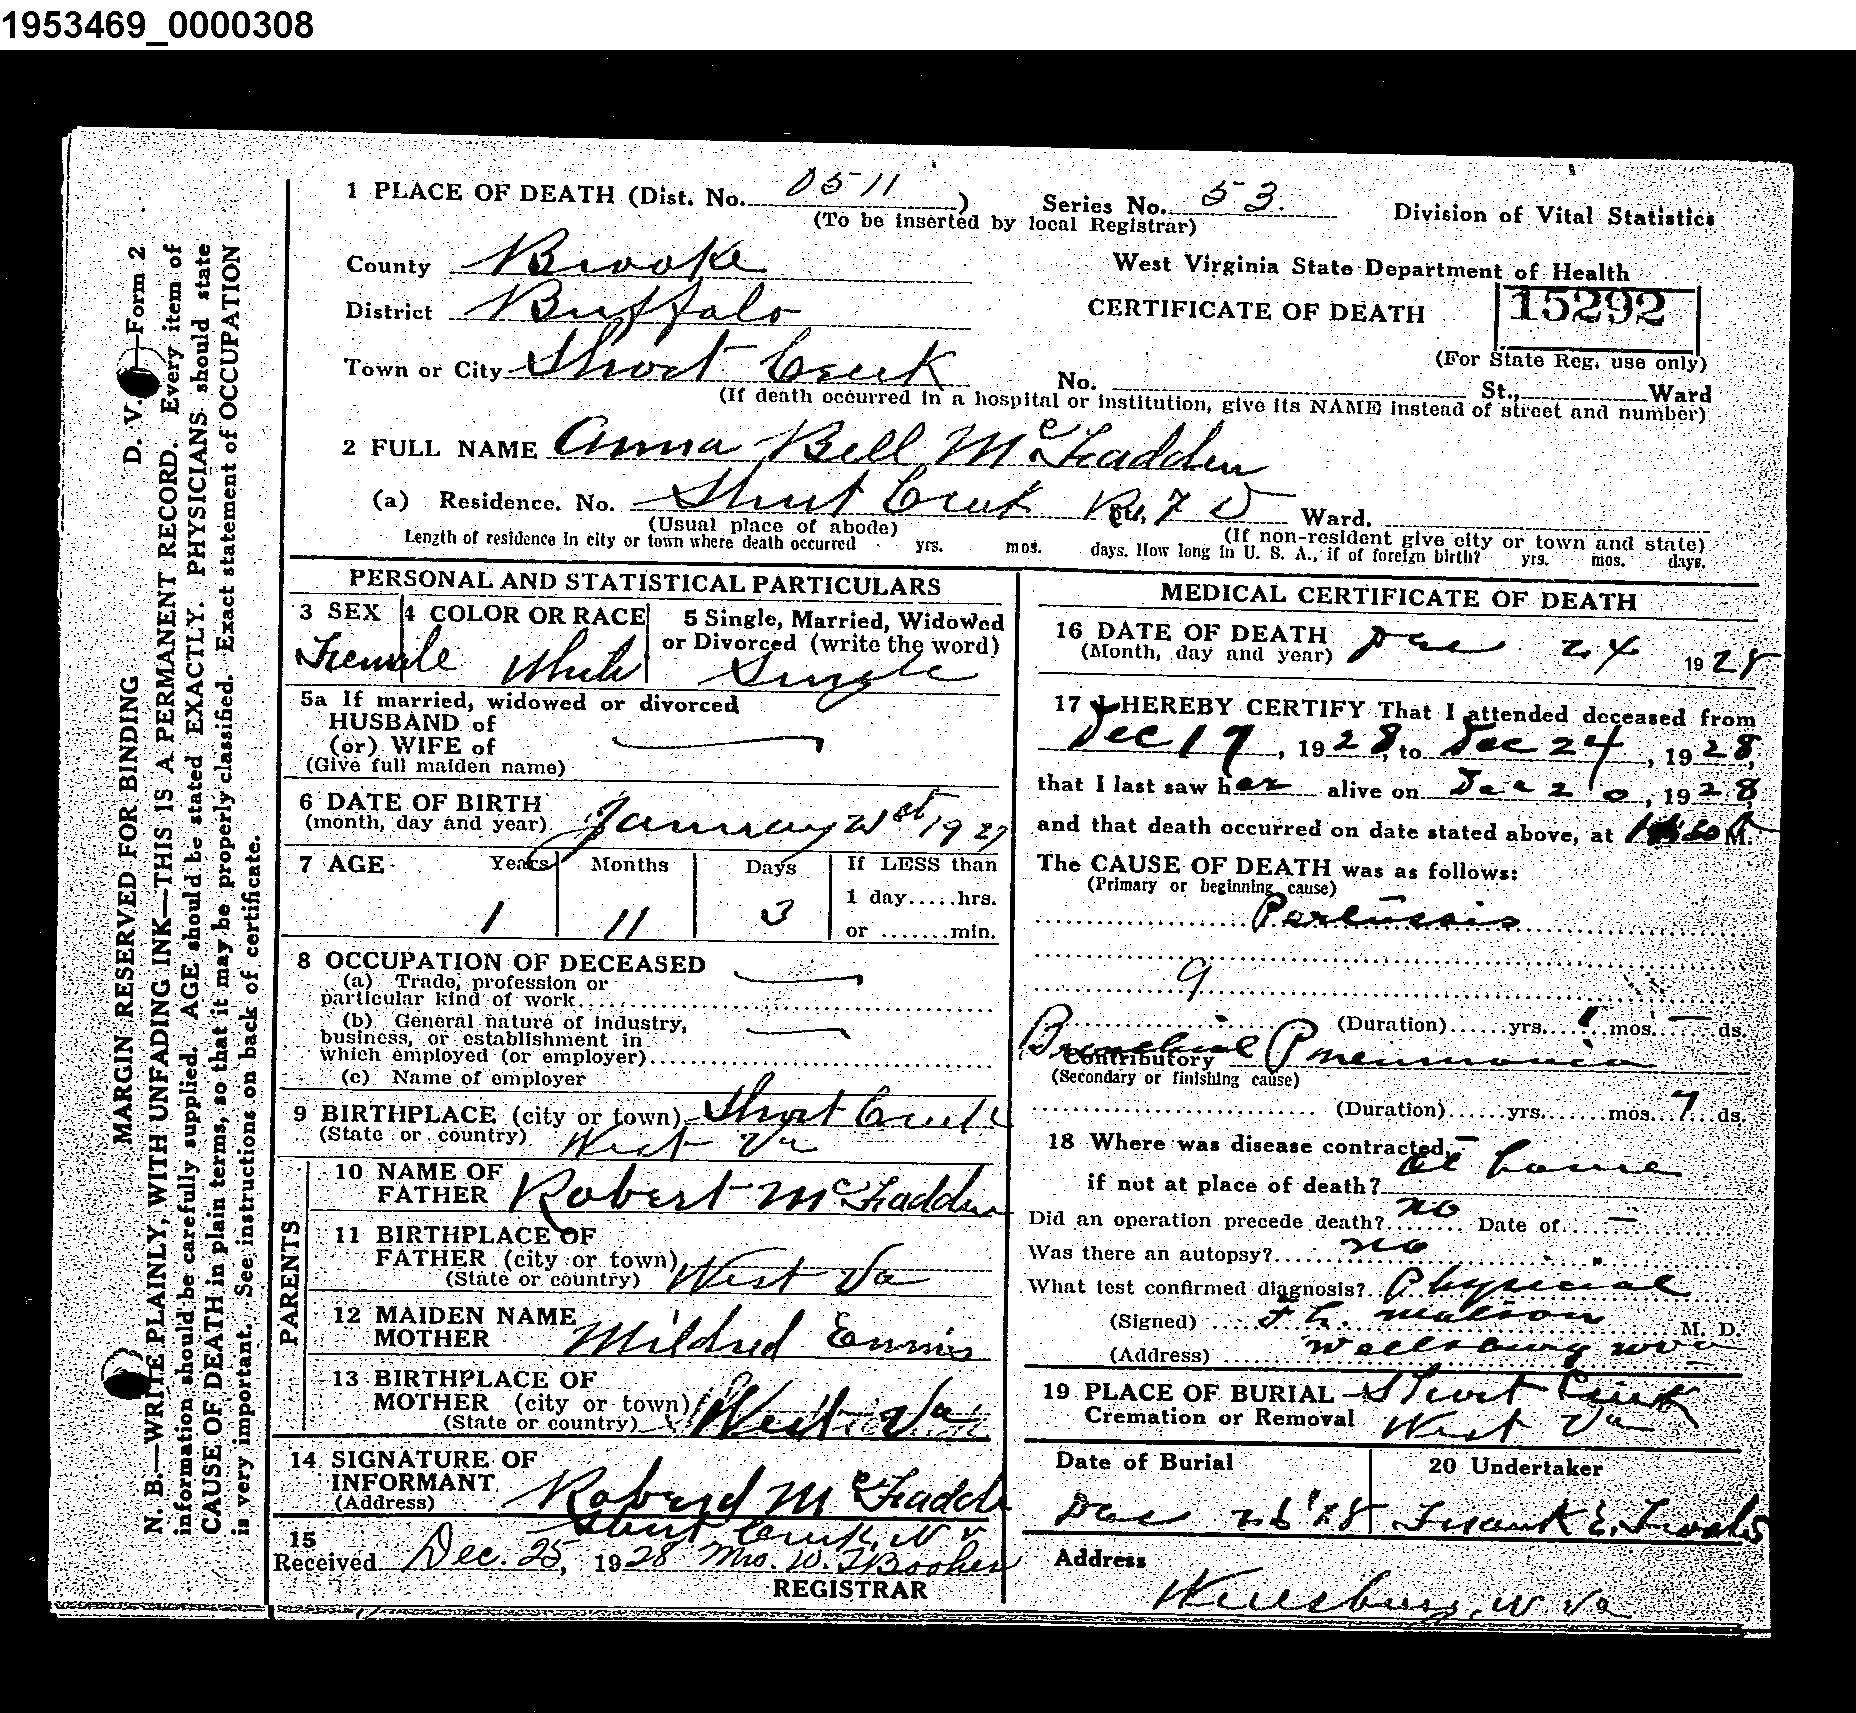 1953469_0000308
1 PLACE OF DEATH (Dist. No. 0511) Series No. 53. Division of Vital Statistics
(To be inserted by local Registrar)
County Brooke West Virginia State Department of Health
District Buffalo CERTIFICATE OF DEATH 15292
(For State Reg. use only)
Town or City Short Creek No. St., Ward
(If death occurred in a hospital or institution, give its NAME instead of street and number)
2 FULL NAME Anna Bell McFadden
(a) Residence. No. Short Creek R. F D Ward.
(Usual place of abode) (If non-resident give city or town and state)
Length of residence in city or town where death occurred yrs. mos. days. How long in U. S. A., if of foreign birth? yrs. mos. days.
PERSONAL AND STATISTICAL PARTICULARS
3 SEX 4 COLOR OR RACE 5 Single, Married, Widowed
or Divorced (write the word)
Female White Single
5a If married, widowed or divorced
HUSBAND of
(or) WIFE of
(Give full maiden name)
6 DATE OF BIRTH
(month, day and year) January 21st 1927
7 AGE Years Months Days If LESS than
1 day.....hrs.
or .......min.
1 11 3
8 OCCUPATION OF DECEASED
(a) Trade, profession or
particular kind of work
(b) General nature of industry,
business, or establishment in
which employed (or employer)
(c) Name of employer
9 BIRTHPLACE (city or town) Short Creek
(State or country) West Va
PARENTS
10 NAME OF
FATHER Robert McFadden
11 BIRTHPLACE OF
FATHER (city or town)
(State or country) West Va
12 MAIDEN NAME
MOTHER Mildred Ennis
13 BIRTHPLACE OF
MOTHER (city or town)
(State or country) West Va
14 SIGNATURE OF
INFORMANT Robert McFadden
(Address) Short Creek, W v
15
Received Dec. 25, 1928 Mrs. W. T Booher
REGISTRAR
MEDICAL CERTIFICATE OF DEATH
16 DATE OF DEATH
(Month, day and year) Dec 24 1928
17 I HEREBY CERTIFY That I attended deceased from
Dec 19, 1928, to Dec 24, 1928,
that I last saw her alive on Dec 20, 1928
and that death occurred on date stated above, at M.
The CAUSE OF DEATH was as follows:
(Primary or beginning cause)
Pertussis
9
(Duration)......yrs. 1 mos. — ds.
Bronchial Pneumonia
Contributory
(Secondary or finishing cause)
(Duration)......yrs......mos. 7 ds.
18 Where was disease contracted,
if not at place of death? at home
Did an operation precede death? no Date of —
Was there an autopsy? no
What test confirmed diagnosis? Physical
(Signed) M. D.
(Address) Wellsburg W Va
19 PLACE OF BURIAL Short Creek
Cremation or Removal West Va
Date of Burial 20 Undertaker
Dec 26 '28 Frank E.
Address
Wellsburg, W. Va
MARGIN RESERVED FOR BINDING D. V. —Form 2
N. B.—WRITE PLAINLY, WITH UNFADING INK—THIS IS A PERMANENT RECORD. Every item of
information should be carefully supplied. AGE should be stated EXACTLY. PHYSICIANS should state
CAUSE OF DEATH in plain terms, so that it may be properly classified. Exact statement of OCCUPATION
is very important. See instructions on back of certificate.